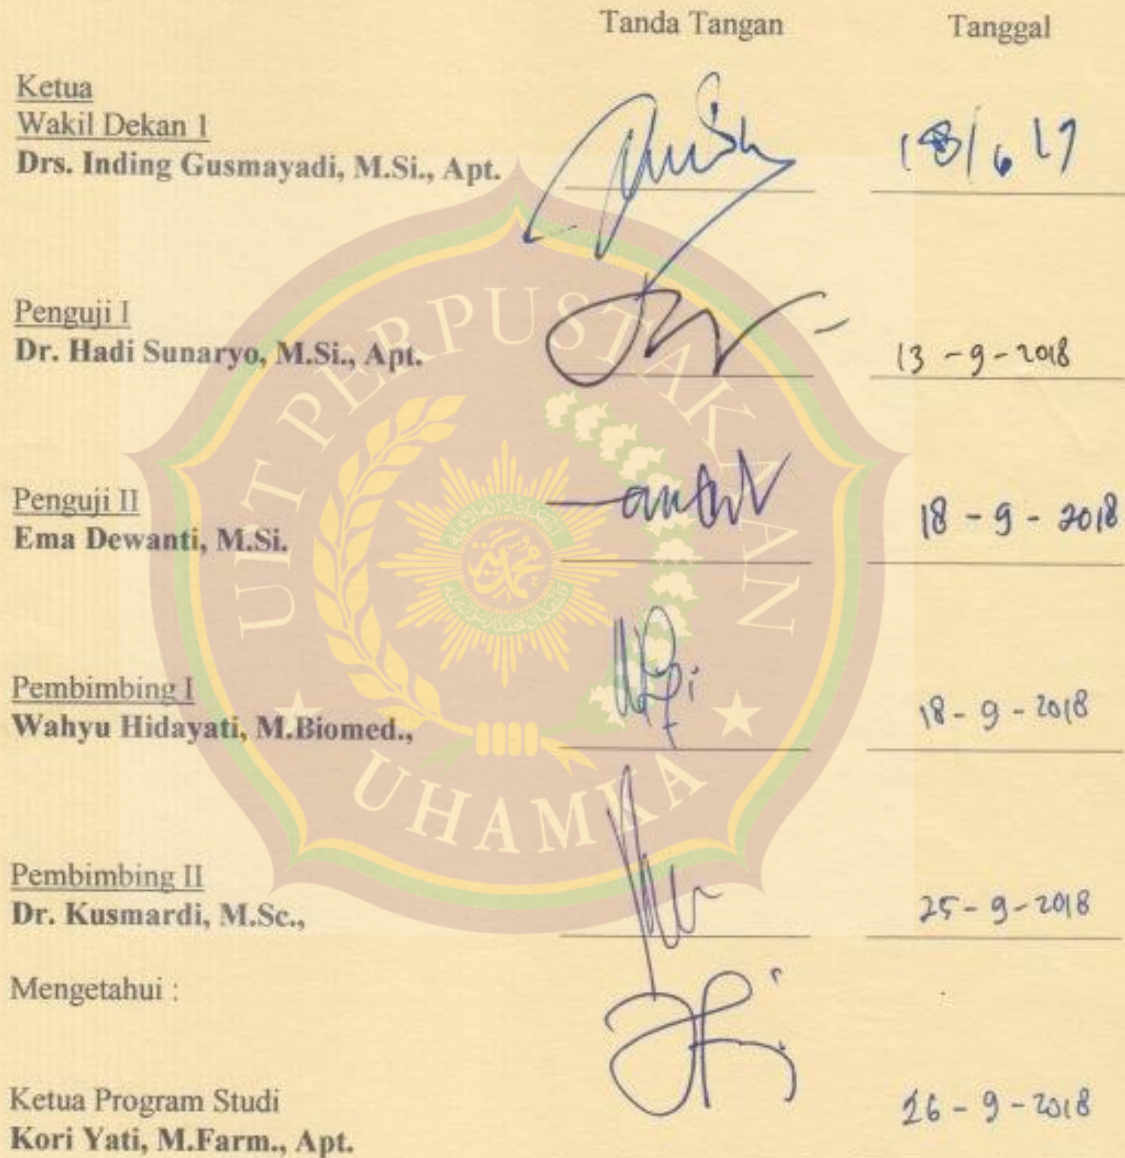 Tanda Tangan Tanggal
Ketua
Wakil Dekan 1
Drs. Inding Gusmayadi, M.Si., Apt.
Penguji I
Dr. Hadi Sunaryo, M.Si., Apt.
13 - 9 - 2018
Penguji II
Ema Dewanti, M.Si.
18 - 9 - 2018
Pembimbing I
Wahyu Hidayati, M.Biomed.,
18 - 9 - 2018
Pembimbing II
Dr. Kusmardi, M.Sc.,
25 - 9 - 2018
Mengetahui :
Ketua Program Studi
Kori Yati, M.Farm., Apt.
26 - 9 - 2018
UIT PERPUSTAKAAN
UHAMKA